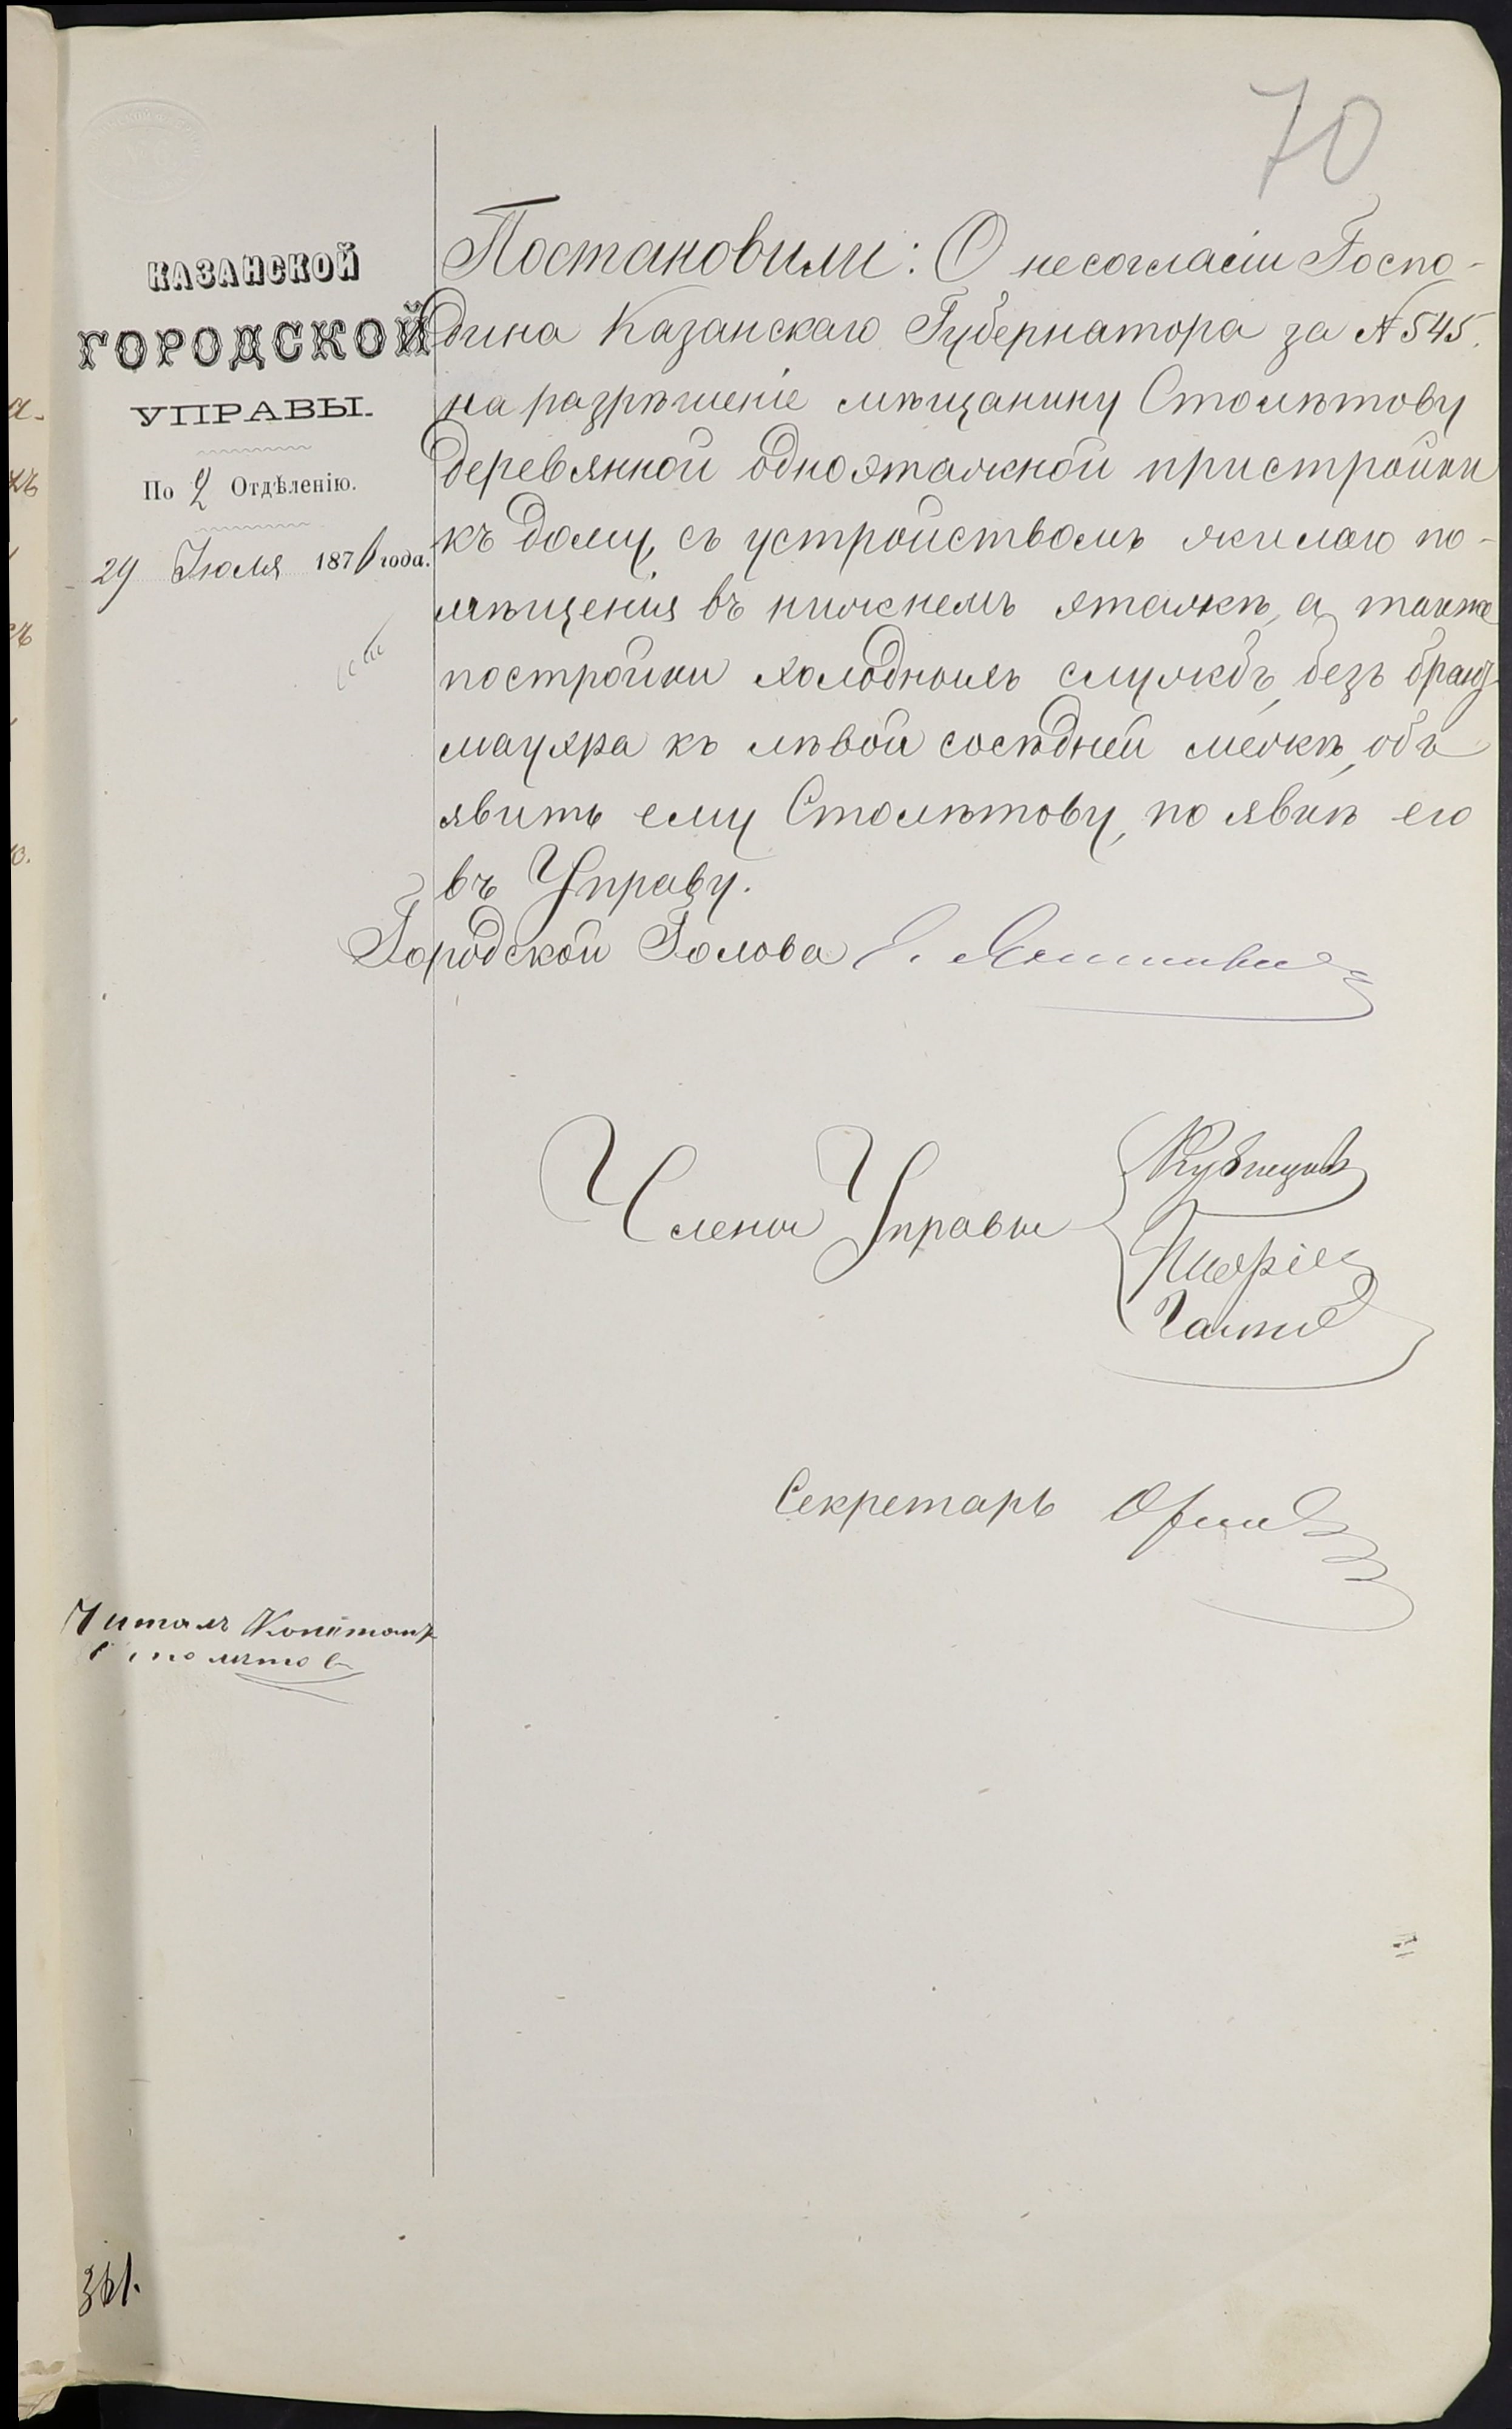 70
КАЗАНСКОЙ
ГОРОДСКОЙ
УПРАВЫ.
По 2 Отдѣленію.
29 Іюля 1876 года.
Постановили: О несогласіи Госпо-
дина Казанскаго Губернатора за № 545.
на разрѣшеніе мѣщанину Столѣтову
деревянной одноэтажной пристройки
къ дому, съ устройствомъ жилаго по-
мѣщенія въ нижнемъ этажѣ, а также
постройки холодныхъ службъ, безъ бранд-
мауэра къ лѣвой сосѣдней межѣ, объ
явить ему Столѣтову, по явкѣ его
въ Управу.
Городской Голова
Члены Управы
Кузнецовъ
Секретарь
Читалъ
Столѣтов
361.